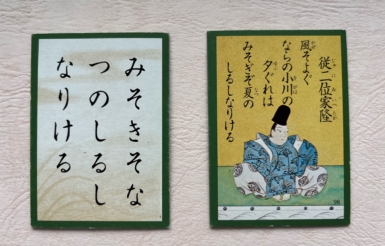 みそきそな
つのしるし
なりける
従二位家隆
風そよぐ
ならの小川の
夕ぐれは
みそぎぞ夏の
しるしなりける